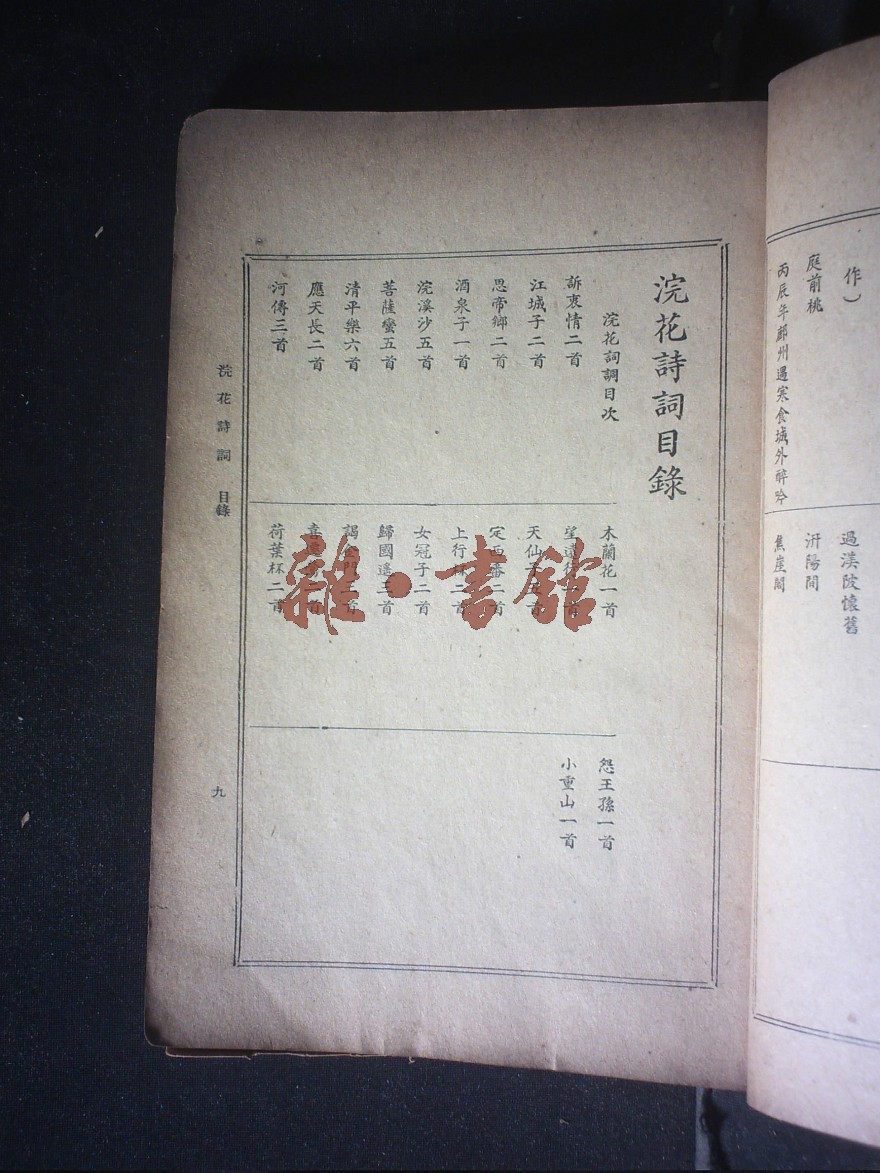 作）
庭前桃
丙辰年鄜州遇寒食城外醉吟
過渼陂懷舊
汧陽間
焦崖閣
浣花詩詞目錄
浣花詞調目次
訴衷情二首
江城子二首
思帝鄉二首
酒泉子一首
浣溪沙五首
菩薩蠻五首
清平樂六首
應天長二首
河傳三首
木蘭花一首
望遠行首
天仙子首
定西番二首
上行杯二首
女冠子二首
歸國遙三首
謁金門首
喜遷鶯首
荷葉杯二首
怨王孫一首
小重山一首
浣花詩詞 目錄
九
雜·書館